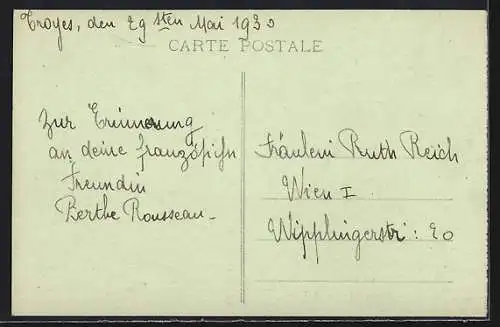 Troyes, den 29sten Mai 1930
CARTE POSTALE
Zur Erinnerung
an deine französische
Freundin
Berthe Rousseau
Fräulein Ruth Reich
Wien I
Wipplingerstr: 20